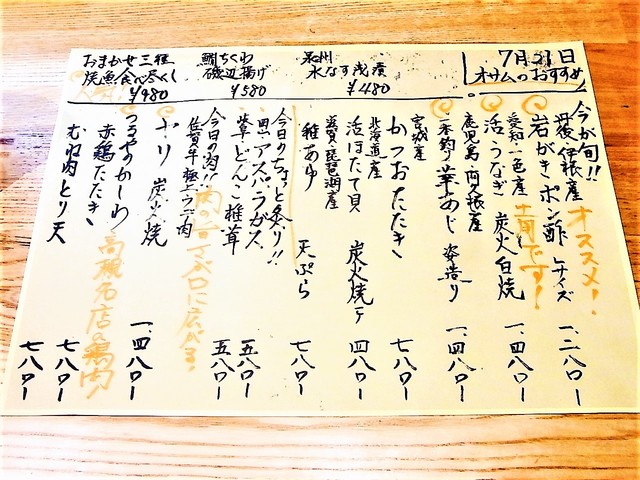 7月21日
オサムのおすすめ
泉州
水なす浅漬
¥480
鯛ちくわ
磯辺揚げ
¥580
おまかせ三種
炭魚食べ尽くし
¥980
今が旬!!
丹後・伊根産
岩がきポン酢 Lサイズ 一、二八〇ー
オススメ!
愛知・一色産
活うなぎ 炭火白焼 一、四八〇ー
土用です!
鹿児島・阿久根産
一本釣り華あじ 姿造り 一、四八〇ー
宮城産
かつおたたき 七八〇ー
北海道産
活ほたて貝 炭火焼 四八〇ー
滋賀・琵琶湖産
稚あゆ 天ぷら 七八〇ー
今日のちょっと炙り!!
アスパラガス 五八〇ー
どんこ椎茸 五八〇ー
今日の肉!!
佐賀牛 極上ラブ肉
炭火焼 一、四八〇ー
肉の旨でお口に広がる!
つるやのかしわ
赤鶏たたき 七八〇ー
むね肉とり天 七八〇ー
高槻名店の鶏肉